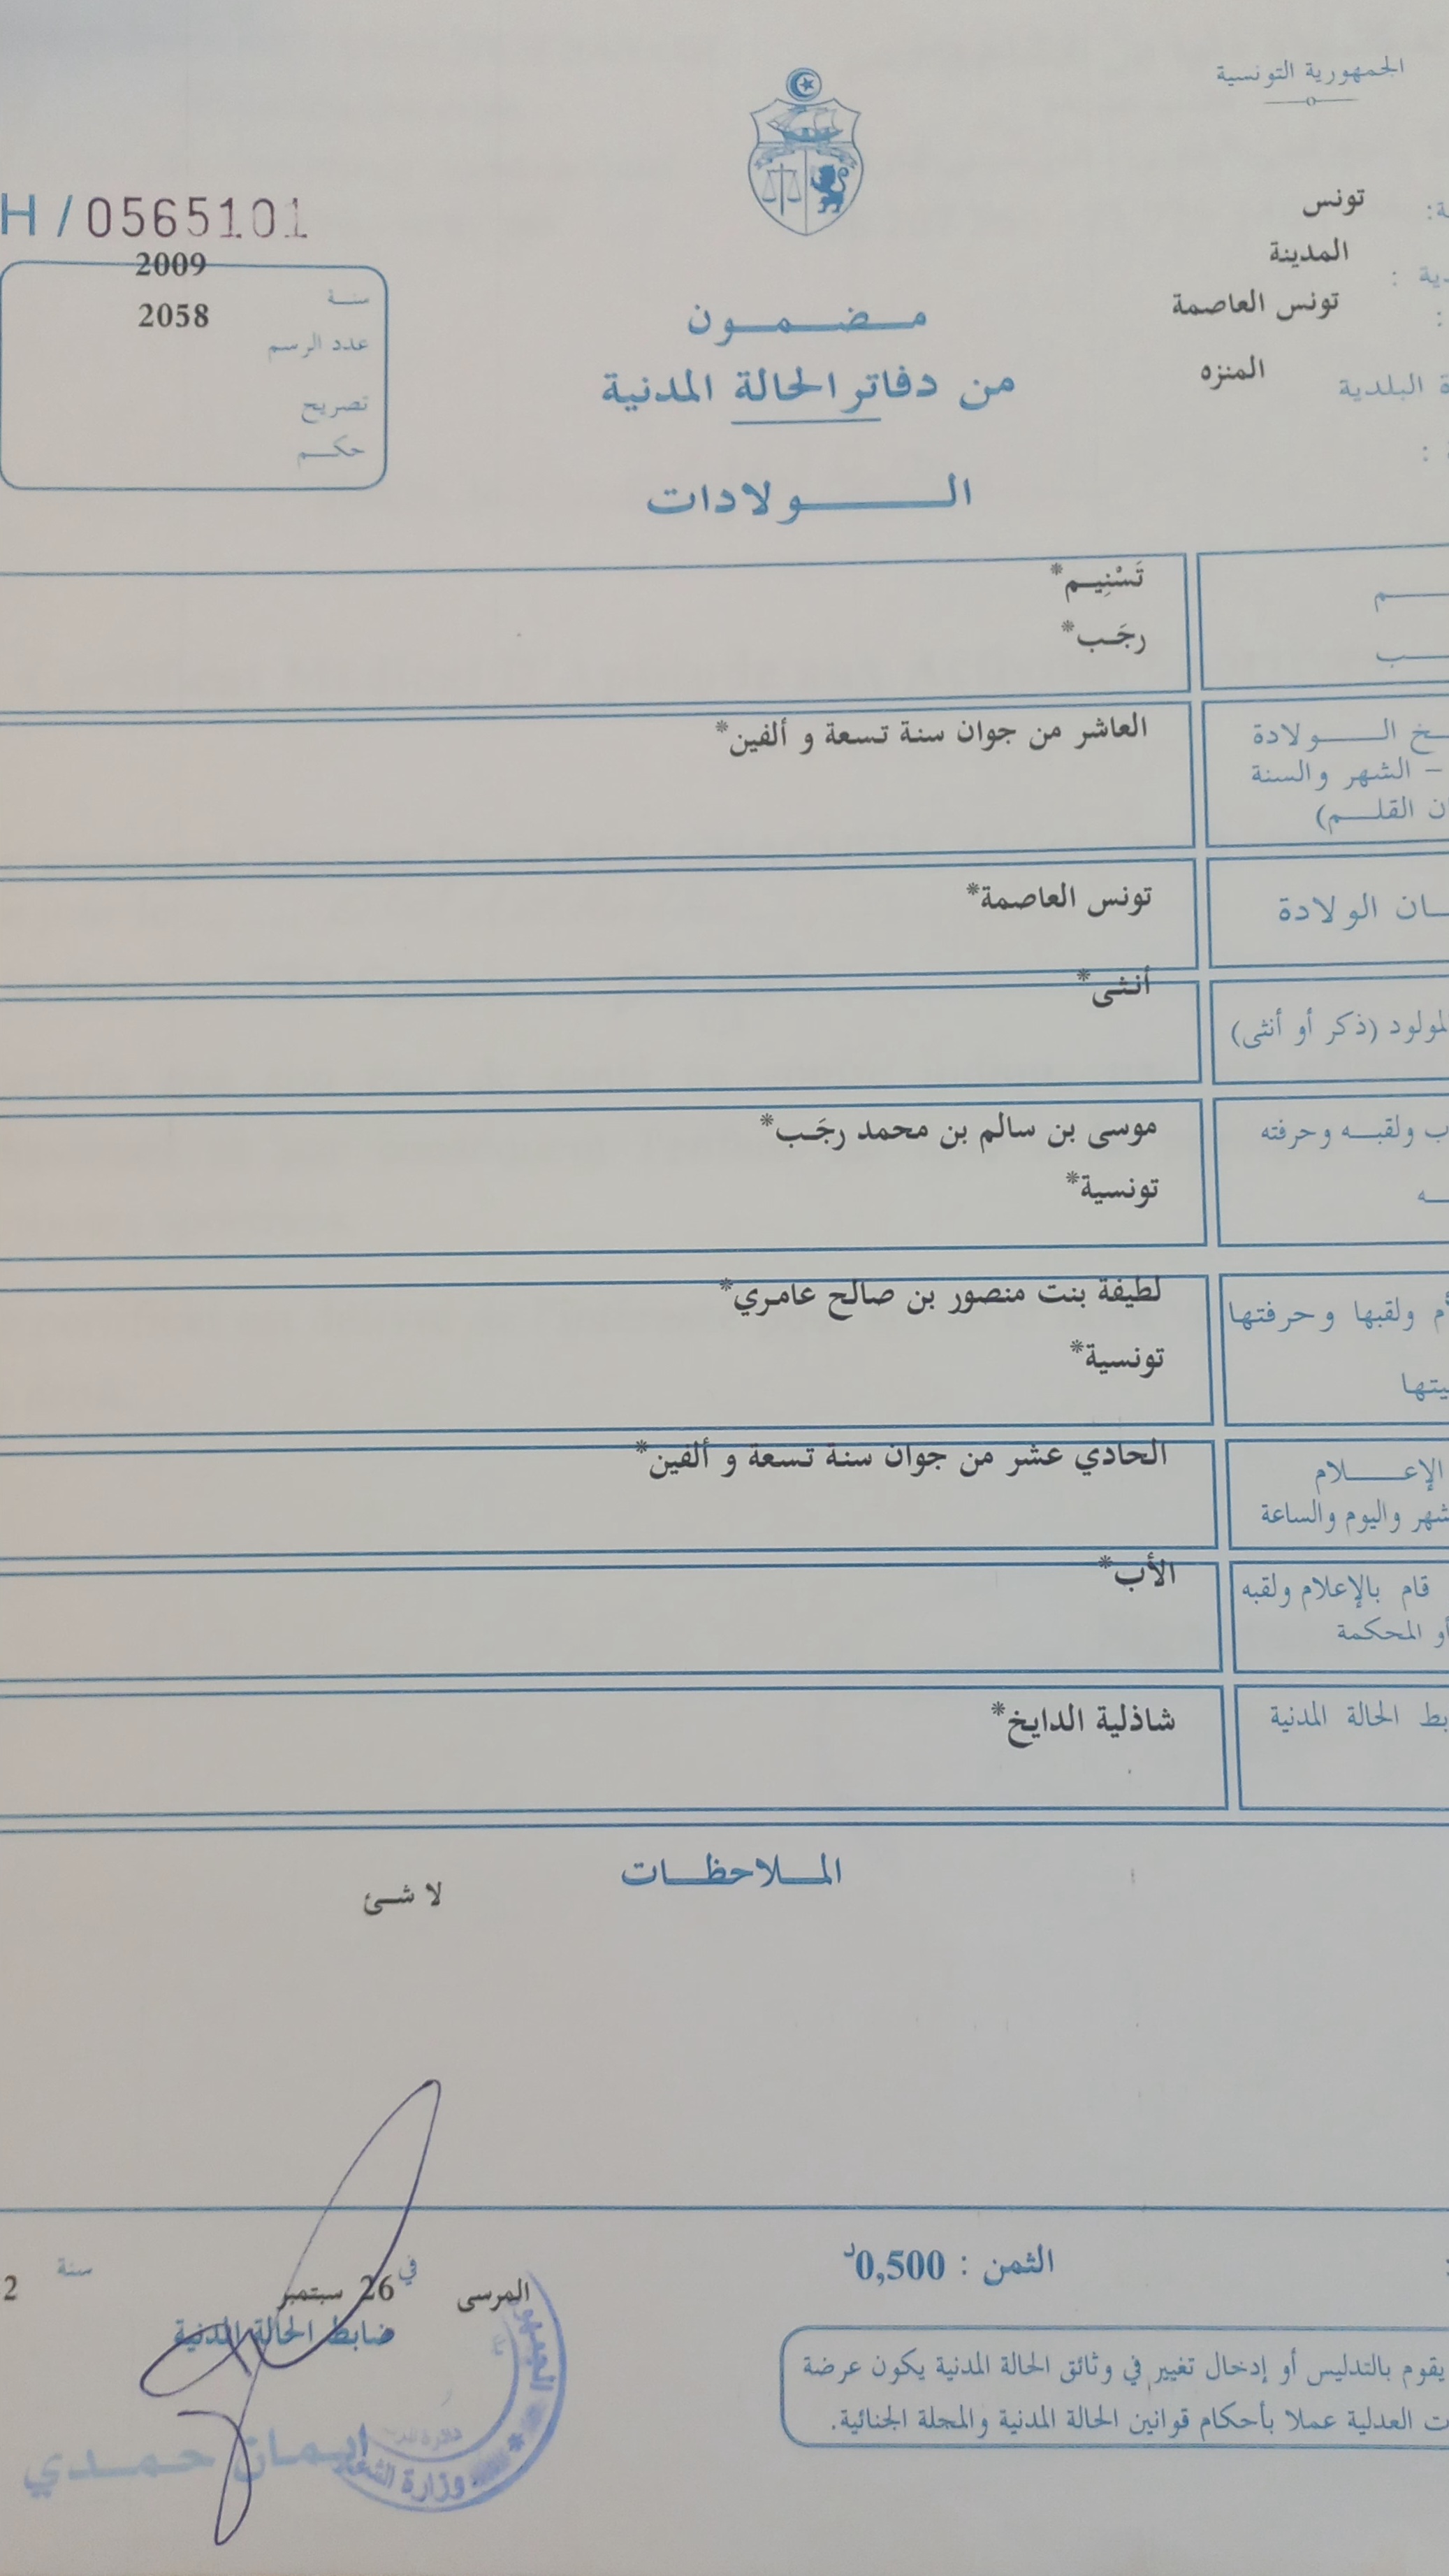 الجمهورية التونسية
تونس
المدينة
تونس العاصمة
البلدية المنزه
H / 0565101
سنة 2009
عدد الرسم 2058
تصريح
حكم
مضمون
من دفاتر الحالة المدنية
الولادات
تَسْنِيم*
رجَب*
الولادة
- الشهر والسنة
القلم)
العاشر من جوان سنة تسعة و ألفين*
الولادة
تونس العاصمة*
(ذكر أو أنثى)
أنثى*
ولقبه وحرفته
موسى بن سالم بن محمد رجَب*
تونسية*
ولقبها وحرفتها
لطيفة بنت منصور بن صالح عامري*
تونسية*
الإعلام
واليوم والساعة
الحادي عشر من جوان سنة تسعة و ألفين*
قام بالإعلام ولقبه
أو المحكمة
الأب*
الحالة المدنية
شاذلية الدايخ*
الملاحظات
لا شئ
الثمن : 0,500د
المرسى في 26 سبتمبر سنة 2
ضابط الحالة المدنية
إيمان حمدي
وزارة
يقوم بالتدليس أو إدخال تغيير في وثائق الحالة المدنية يكون عرضة
العدلية عملا بأحكام قوانين الحالة المدنية والمجلة الجنائية.